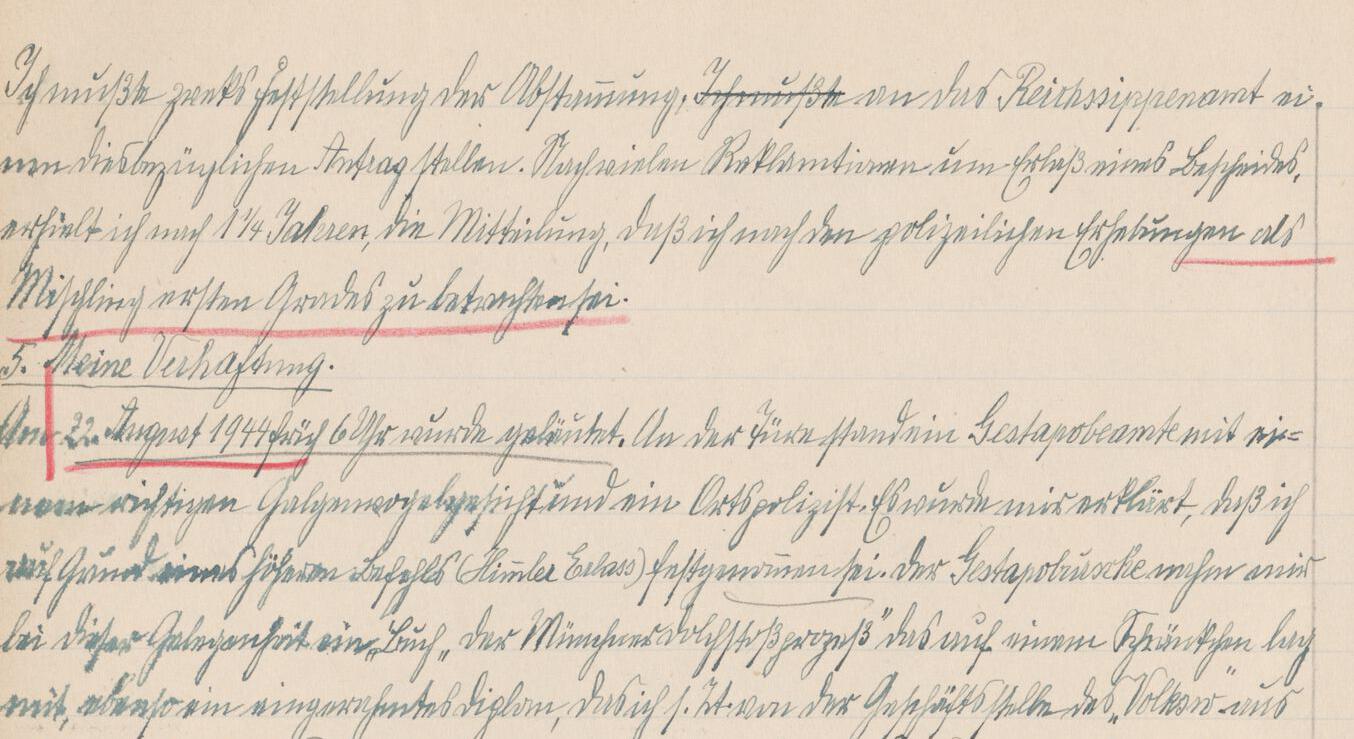 Ich mußte zweks Feststellung der Abstam̅ung, Ich mußte an das Reichssippenamt ei-
nen diesbezüglichen Antrag stellen. Nach vielen Reklamtionen um Erlaß eines Bescheides,
erhielt ich nach 1 1/4 Jahren, die Mitteilung, daß ich nach den polizeilichen Erhebungen als
Mischling ersten Grades zu betrachten sei.
5. Meine Verhaftung.
Am 22. August 1944 früh 6 Uhr wurde geläutet. An der Türe stand ein Gestapobeamte mit ei=
nem richtigen Galgenvogelgesicht und ein Ortspolizist. Es wurde mir erklärt, daß ich
auf Grund eines höheren Befehls (Him̅ler Erlass) festgenom̅en sei. Der Gestapobursche nahm mir
bei dieser Gelegenheit ein Buch „ Der Münchner Dolchstoßprozeß" das auf einem Schränkchen lag
mit, ebenso ein eingerahmtes Diplom, das ich s. Zt. von der Geschäftsstelle des „ aus